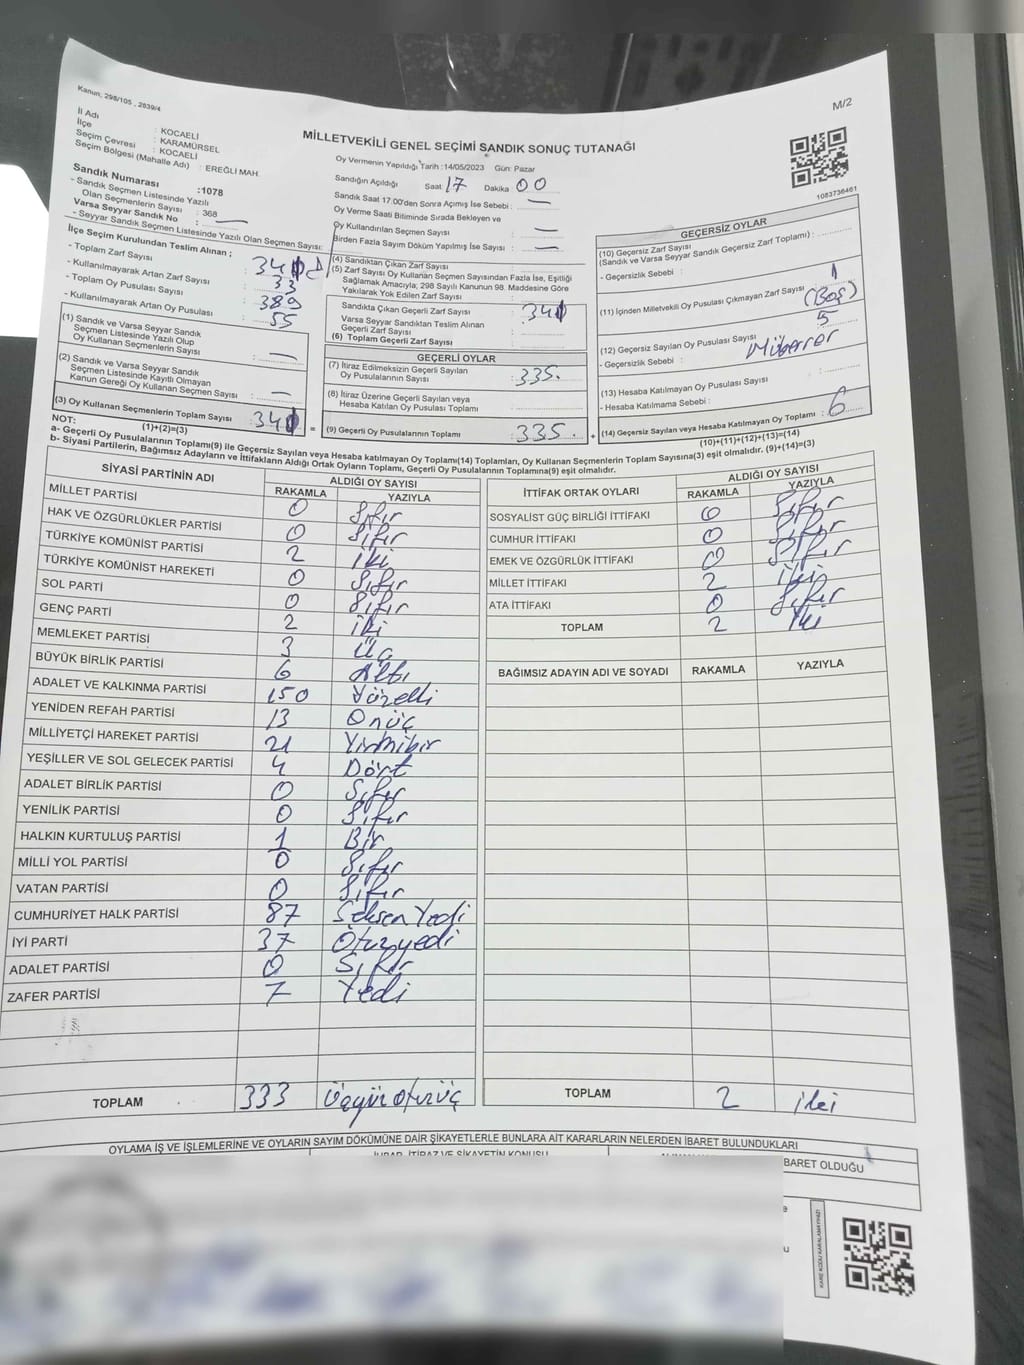 Kanun, 298/105 , 2839/4
M/2
İl Adı : KOCAELİ
İlçe : KARAMÜRSEL
Seçim Çevresi : KOCAELİ
Seçim Bölgesi (Mahalle Adı) : EREĞLİ MAH.
Sandık Numarası :1078
- Sandık Seçmen Listesinde Yazılı
Olan Seçmenlerin Sayısı : 368
Varsa Seyyar Sandık No : —
- Seyyar Sandık Seçmen Listesinde Yazılı Olan Seçmen Sayısı:
MİLLETVEKİLİ GENEL SEÇİMİ SANDIK SONUÇ TUTANAĞI
Oy Vermenin Yapıldığı Tarih :14/05/2023 Gün: Pazar
Sandığın Açıldığı Saat: 17 Dakika 00
Sandık Saat 17.00'den Sonra Açımış İse Sebebi : —
Oy Verme Saati Bitiminde Sırada Bekleyen ve
Oy Kullandırılan Seçmen Sayısı : —
Birden Fazla Sayım Döküm Yapılmış İse Sayısı : —
1083736461
İlçe Seçim Kurulundan Teslim Alınan ;
- Toplam Zarf Sayısı :
- Kullanılmayarak Artan Zarf Sayısı : 33
- Toplam Oy Pusulası : 389
- Kullanılmayarak Artan Oy Pusulası : 55
(1) Sandık ve Varsa Seyyar Sandık
Seçmen Listesinde Yazılı Olup
Oy Kullanan Seçmenlerin Sayısı : —
(2) Sandık ve Varsa Seyyar Sandık
Seçmen Listesinde Kayıtlı Olmayan
Kanun Gereği Oy Kullanan Seçmen Sayısı : —
(3) Oy Kullanan Seçmenlerin Toplam Sayısı : 341
(1)+(2)=(3)
(4) Sandıktan Çıkan Zarf Sayısı :
(5) Zarf Sayısı Oy Kullanan Seçmen Sayısından Fazla İse, Eşitliği
Sağlamak Amacıyla; 298 Sayılı Kanunun 98. Maddesine Göre
Yakılarak Yok Edilen Zarf Sayısı :
Sandıkta Çıkan Geçerli Zarf Sayısı : 341
Varsa Seyyar Sandıktan Teslim Alınan
Geçerli Zarf Sayısı :
(6) Toplam Geçerli Zarf Sayısı :
GEÇERLİ OYLAR
(7) İtiraz Edilmeksizin Geçerli Sayılan
Oy Pusulalarının Sayısı : 335.
(8) İtiraz Üzerine Geçerli Sayılan veya
Hesaba Katılan Oy Pusulası Toplamı :
= (9) Geçerli Oy Pusulalarının Toplamı : 335. +
GEÇERSİZ OYLAR
(10) Geçersiz Zarf Sayısı
(Sandık ve Varsa Seyyar Sandık Geçersiz Zarf Toplamı) :
- Geçersizlik Sebebi :
(11) İçinden Milletvekili Oy Pusulası Çıkmayan Zarf Sayısı : 1
(Boş)
(12) Geçersiz Sayılan Oy Pusulası Sayısı : 5
- Geçersizlik Sebebi : Mükerrer
(13) Hesaba Katılmayan Oy Pusulası Sayısı :
- Hesaba Katılmama Sebebi :
(14) Geçersiz Sayılan veya Hesaba Katılmayan Oy Toplamı : 6
(10)+(11)+(12)+(13)=(14)
NOT:
a- Geçerli Oy Pusulalarının Toplamı(9) ile Geçersiz Sayılan veya Hesaba Katılmayan Oy Toplamı(14) Toplamları, Oy Kullanan Seçmenlerin Toplam Sayısına(3) eşit olmalıdır. (9)+(14)=(3)
b- Siyasi Partilerin, Bağımsız Adayların ve İttifakların Aldığı Ortak Oyların Toplamı, Geçerli Oy Pusulalarının Toplamına(9) eşit olmalıdır.
SİYASİ PARTİNİN ADI ALDIĞI OY SAYISI
RAKAMLA YAZIYLA
MİLLET PARTİSİ 0 Sıfır
HAK VE ÖZGÜRLÜKLER PARTİSİ 0 Sıfır
TÜRKİYE KOMÜNİST PARTİSİ 2 iki
TÜRKİYE KOMÜNİST HAREKETİ 0 Sıfır
SOL PARTİ 0 Sıfır
GENÇ PARTİ 2 iki
MEMLEKET PARTİSİ 3 Üç
BÜYÜK BİRLİK PARTİSİ 6 Altı
ADALET VE KALKINMA PARTİSİ 150 Yüzelli
YENİDEN REFAH PARTİSİ 13 Onüç
MİLLİYETÇİ HAREKET PARTİSİ 21 Yirmibir
YEŞİLLER VE SOL GELECEK PARTİSİ 4 Dört
ADALET BİRLİK PARTİSİ 0 Sıfır
YENİLİK PARTİSİ 0 Sıfır
HALKIN KURTULUŞ PARTİSİ 1 Bir
MİLLİ YOL PARTİSİ 0 Sıfır
VATAN PARTİSİ 0 Sıfır
CUMHURİYET HALK PARTİSİ 87 Seksen Yedi
İYİ PARTİ 37 Otuzyedi
ADALET PARTİSİ 0 Sıfır
ZAFER PARTİSİ 7 Yedi
TOPLAM 333 Üçyüz otuz üç
İTTİFAK ORTAK OYLARI ALDIĞI OY SAYISI
RAKAMLA YAZIYLA
SOSYALİST GÜÇ BİRLİĞİ İTTİFAKI 0 Sıfır
CUMHUR İTTİFAKI 0 Sıfır
EMEK VE ÖZGÜRLÜK İTTİFAKI 0 Sıfır
MİLLET İTTİFAKI 2 iki
ATA İTTİFAKI 0 Sıfır
TOPLAM 2 iki
BAĞIMSIZ ADAYIN ADI VE SOYADI RAKAMLA YAZIYLA
TOPLAM 2 iki
OYLAMA İŞ VE İŞLEMLERİNE VE OYLARIN SAYIM DÖKÜMÜNE DAİR ŞİKAYETLERLE BUNLARA AİT KARARLARIN NELERDEN İBARET BULUNDUKLARI
İHBAR, İTİRAZ VE ŞİKAYETİN KONUSU
BARET OLDUĞU